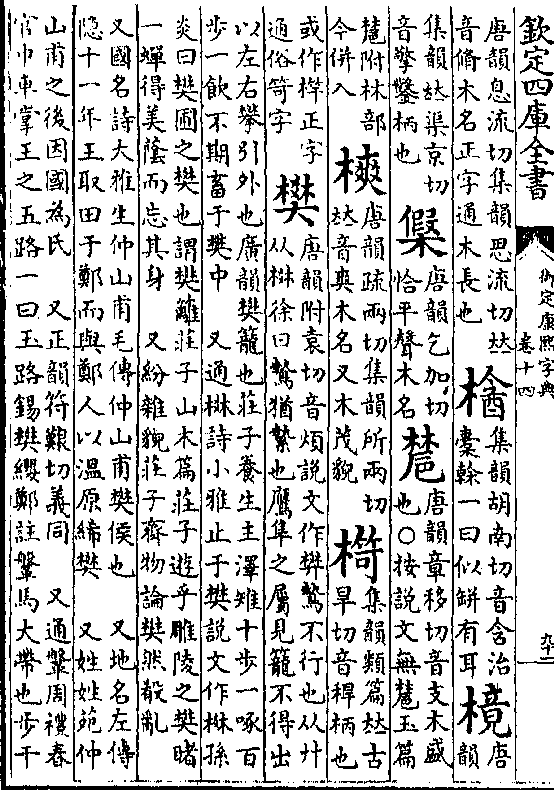 欽定四庫全書
御定康熙字典
卷十四
唐韻息流切集韻思流切𠀤
音脩木名正字通木長也
集韻胡南切音含治
橐榦一曰似缾有耳
樈
唐
韻
集韻𠀤渠京切
音擎鑿柄也
唐韻乞加切
恰平聲木名
唐韻章移切音支木盛
也○按說文無 玉篇
附林部
今併入
樉
唐韻疏兩切集韻所兩切
𠀤音爽木名又木茂貌
集韻類篇𠀤古
旱切音稈柄也
或作桿正字
通俗笴字
樊
唐韻附袁切音煩說文作樊鷙不行也从廾
从棥徐曰鷙猶縶也鷹隼之屬見籠不得出
以左右攀引外也廣韻樊籠也莊子養生主澤雉十步一啄百
步一飲不期畜于樊中 又通棥詩小雅止于樊說文作棥孫
炎曰樊圃之樊也謂樊籬莊子山木篇莊子遊乎雕陵之樊睹
一蟬得美蔭而忘其身 又紛雜貌莊子齊物論樊然殽亂
又國名詩大雅生仲山甫毛傳仲山甫樊侯也 又地名左傳
隱十一年王取田于鄭而與鄭人以溫原絺樊 又姓姓苑仲
山甫之後因國為氏 又正韻符艱切義同 又通鞶周禮春
官巾車掌王之五路一曰玉路錫樊纓鄭註鞶馬大帶也步干